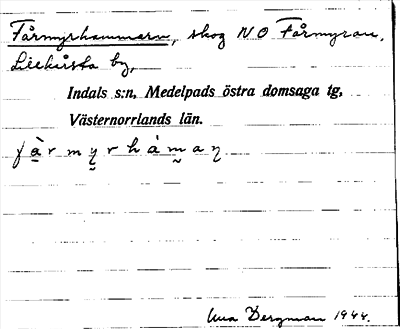 Fårmyrhammarn, skog NO Fårmyran,
Lickåsta by,
Indals s:n, Medelpads östra domsaga tg,
Västernorrlands län.
Una Bergman 1944.